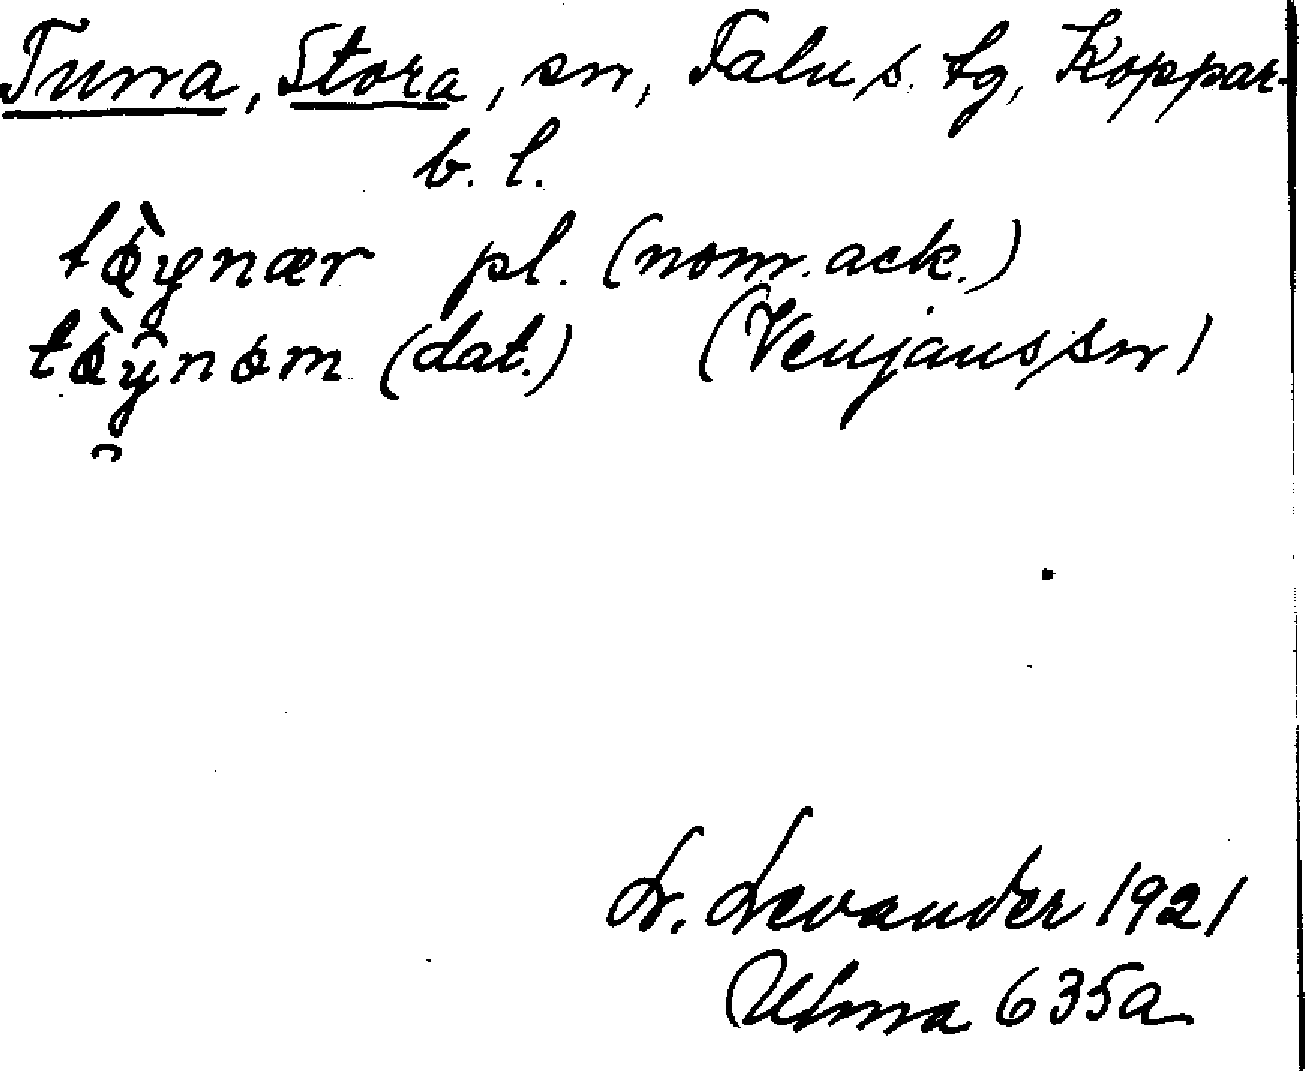 Tuna, Stora, sn, Falu s. tg, Koppar-
b. l.
tø̀ynær pl. (nom. ack.)
tø̀ynøm (dat.) (Venjans sn)
L. Levander 1921
Ulma 635a